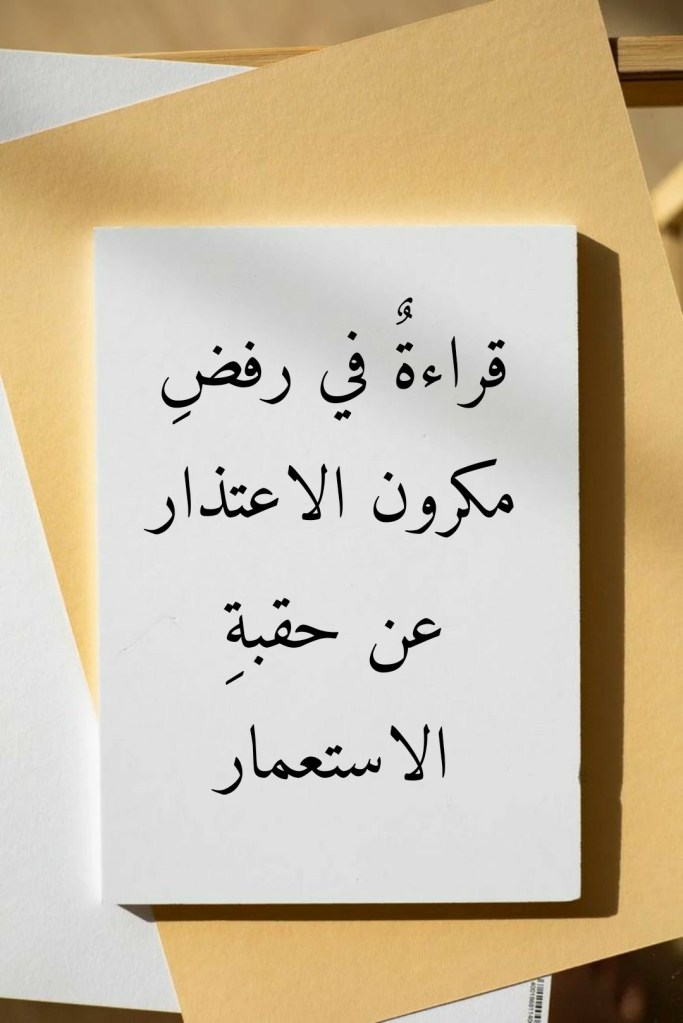 قراءةٌ في رفضِ
مكرون الاعتذار
عن حقبةِ
الاستعمار